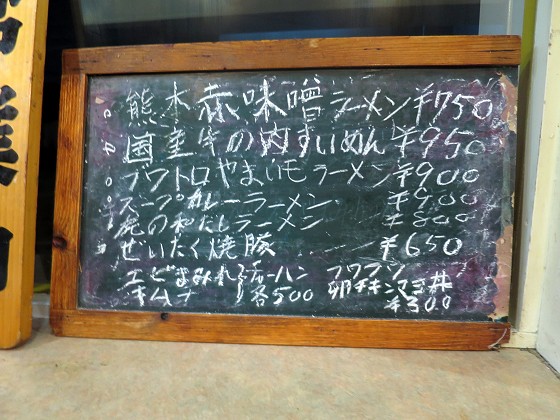 熊本赤味噌ラーメン ¥750
国産牛の肉すいめん ¥950
ブウトロやまいもラーメン ¥900
スープカレーラーメン ¥900
虎の和だしラーメン ¥800
ぜいたく焼豚 ¥650
エビまみれ チャーハン フワフワ
キムチ 各500 卵チキンマヨ丼
¥300